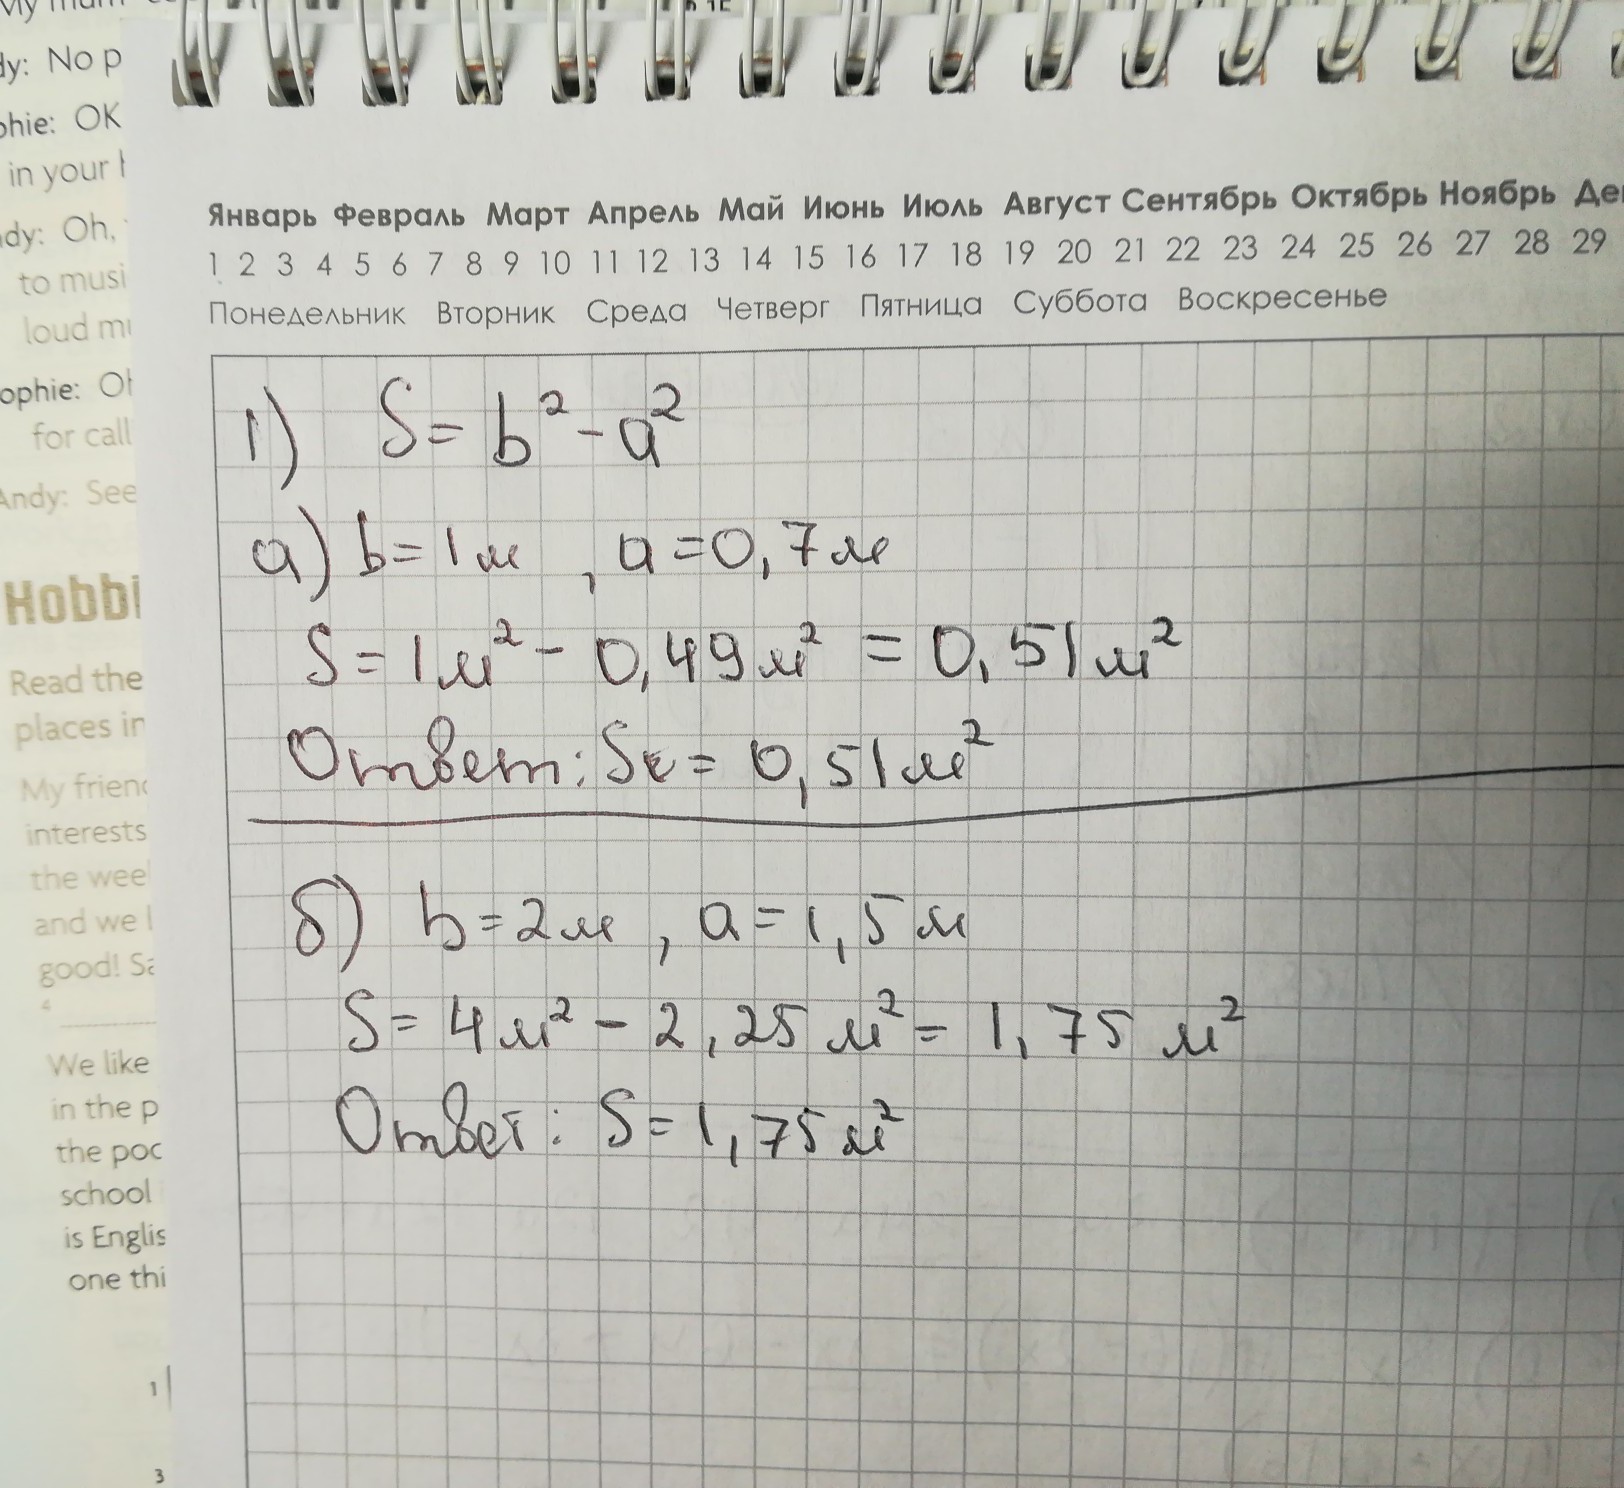 My mum
dy: No p
phie: OK
in your h
ndy: Oh,
to musi
loud mu
ophie: Oh
for call
Andy: See
Hobbi
Read the
places in
My friend
interests
the wee
and we l
good! Sa
4
We like
in the p
the poc
school
is Englis
one thi
1
3
Январь Февраль Март Апрель Май Июнь Июль Август Сентябрь Октябрь Ноябрь Де
1 2 3 4 5 6 7 8 9 10 11 12 13 14 15 16 17 18 19 20 21 22 23 24 25 26 27 28 29
Понедельник Вторник Среда Четверг Пятница Суббота Воскресенье
1) S = b² - a²
а) b = 1 м , a = 0,7 м
S = 1 м² - 0,49 м² = 0,51 м²
Ответ: S = 0,51 м²
б) b = 2 м , a = 1,5 м
S = 4 м² - 2,25 м² = 1,75 м²
Ответ: S = 1,75 м²